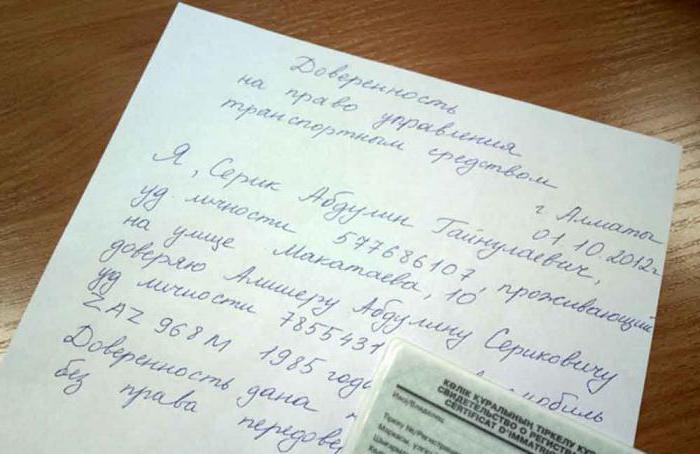 Доверенность
на право управления
транспортным средством
г Алматы
01.10.2012г
Я, Серик Абдулин Гайнулаевич,
уд. личности 577686107, проживающий
на улице Макатаева, 10
доверяю Алишеру Абдулину Сериковичу
уд личности 7855431
ZAZ 968М 1985 годи
Доверенность дана
без права передове
КӨЛІК ҚҰРАЛЫНЫҢ ТІРКЕЛУ КУ
СВИДЕТЕЛЬСТВО О РЕГИСТРА
CERTIFICAT D'IMMATRI